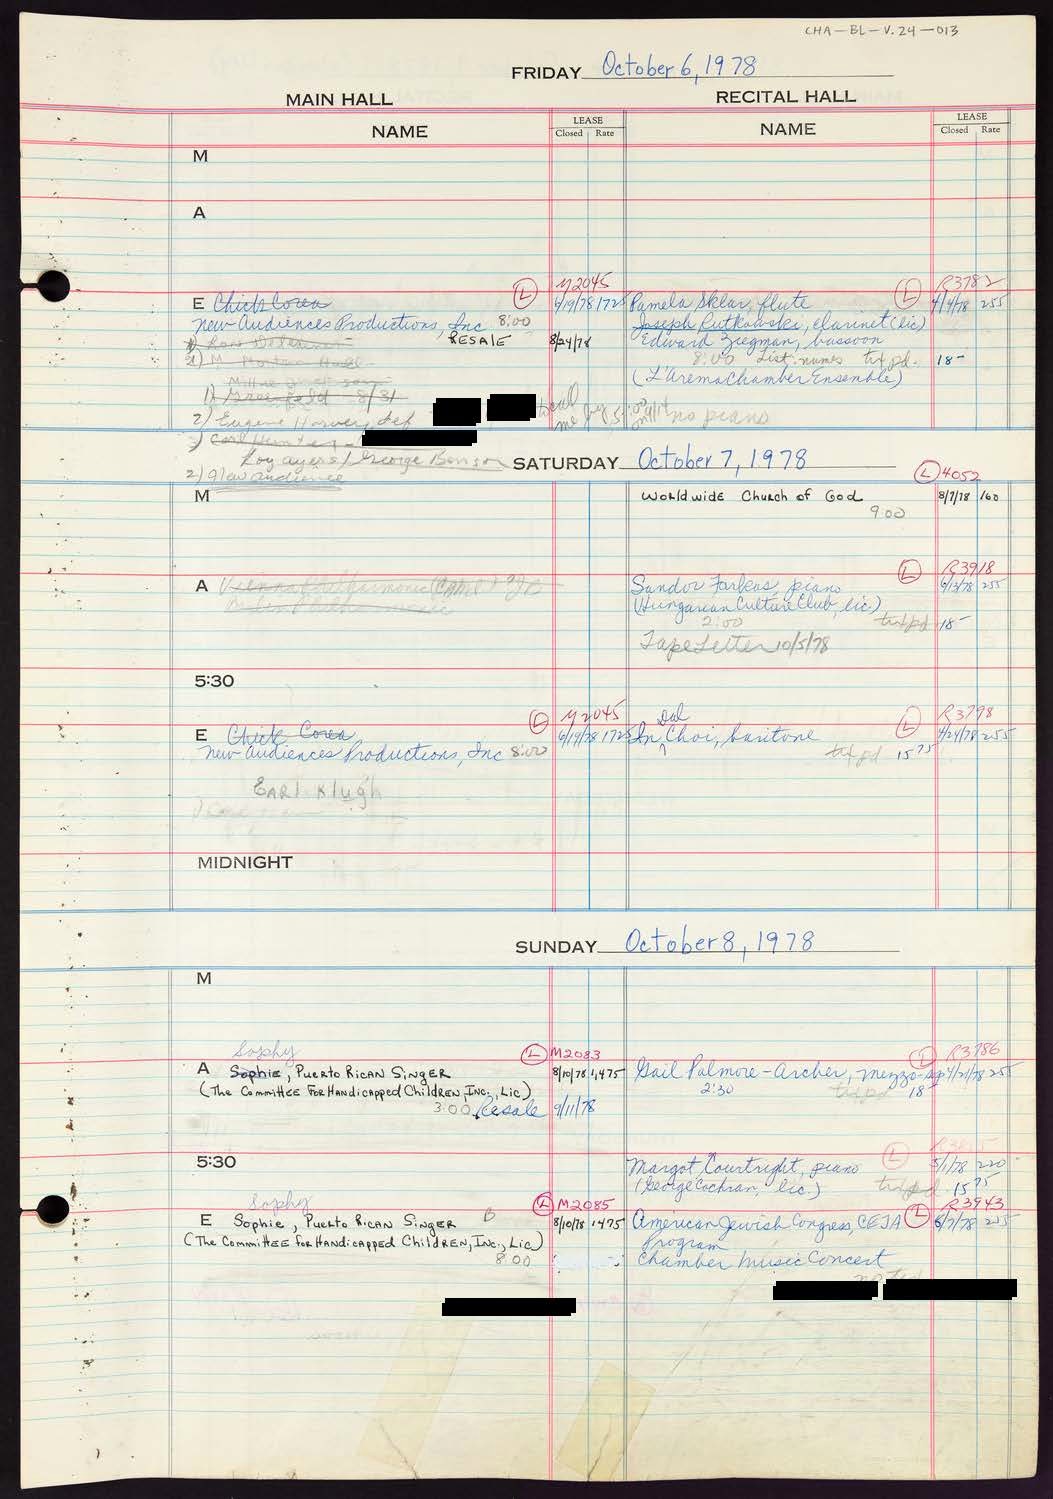 CHA-BL-V.24-013
FRIDAY October 6, 1978
MAIN HALL
RECITAL HALL
NAME
LEASE
Closed Rate
NAME
LEASE
Closed Rate
M
A
M2045
R3782
E Chick Corea L 6/19/78 1725
New Audiences Productions, Inc 8:00
RESALE 8/24/78
1) 8/31
2) Eugene Harvey, def
call me by 5:00 on 9/14
Pamela Sklar, flute L 4/4/78 255
Joseph Rutkowski, clarinet (lic)
Edward Ziegman, bassoon
8:00 List. names txf pd. 18-
(L'Arema Chamber Ensemble)
no piano
Roy ayers / George Benson
2) New audience
SATURDAY October 7, 1978
L 4052
M
Worldwide Church of God 8/7/78 160
9:00
A Vienna Philharmonic
Berlin Philharmonic
L R3918
Sandor Farkas, piano 6/13/78 255
(Hungarian Culture Club, lic)
2:00 txf pd 18-
Tape Letter 10/5/78
5:30
L M2045
E Chick Corea 6/19/78 1725
New Audiences Productions, Inc 8:00
Earl Klugh
L R3798
In Dal Choi, baritone 4/24/78 255
txf pd 15 75
MIDNIGHT
SUNDAY October 8, 1978
M
Sophy
L M2083
A Sophie, Puerto Rican Singer 8/10/78 1,475
(The Committee for Handicapped Children, Inc., Lic)
3:00 Resale 9/11/78
L R3786
Gail Palmore-Archer, mezzo-sop 4/21/78 255
2:30 txf pd 18
5:30
L
Margot Courtright, piano 5/1/78 220
(George Cochran, lic.) txf pd. 15 75
Sophy
L M2085
E Sophie, Puerto Rican Singer B 8/10/78 1475
(The Committee for Handicapped Children, Inc., Lic)
8:00
L R3943
American Jewish Congress, CEJA 6/7/78 255
Program
Chamber Music Concert
no txf